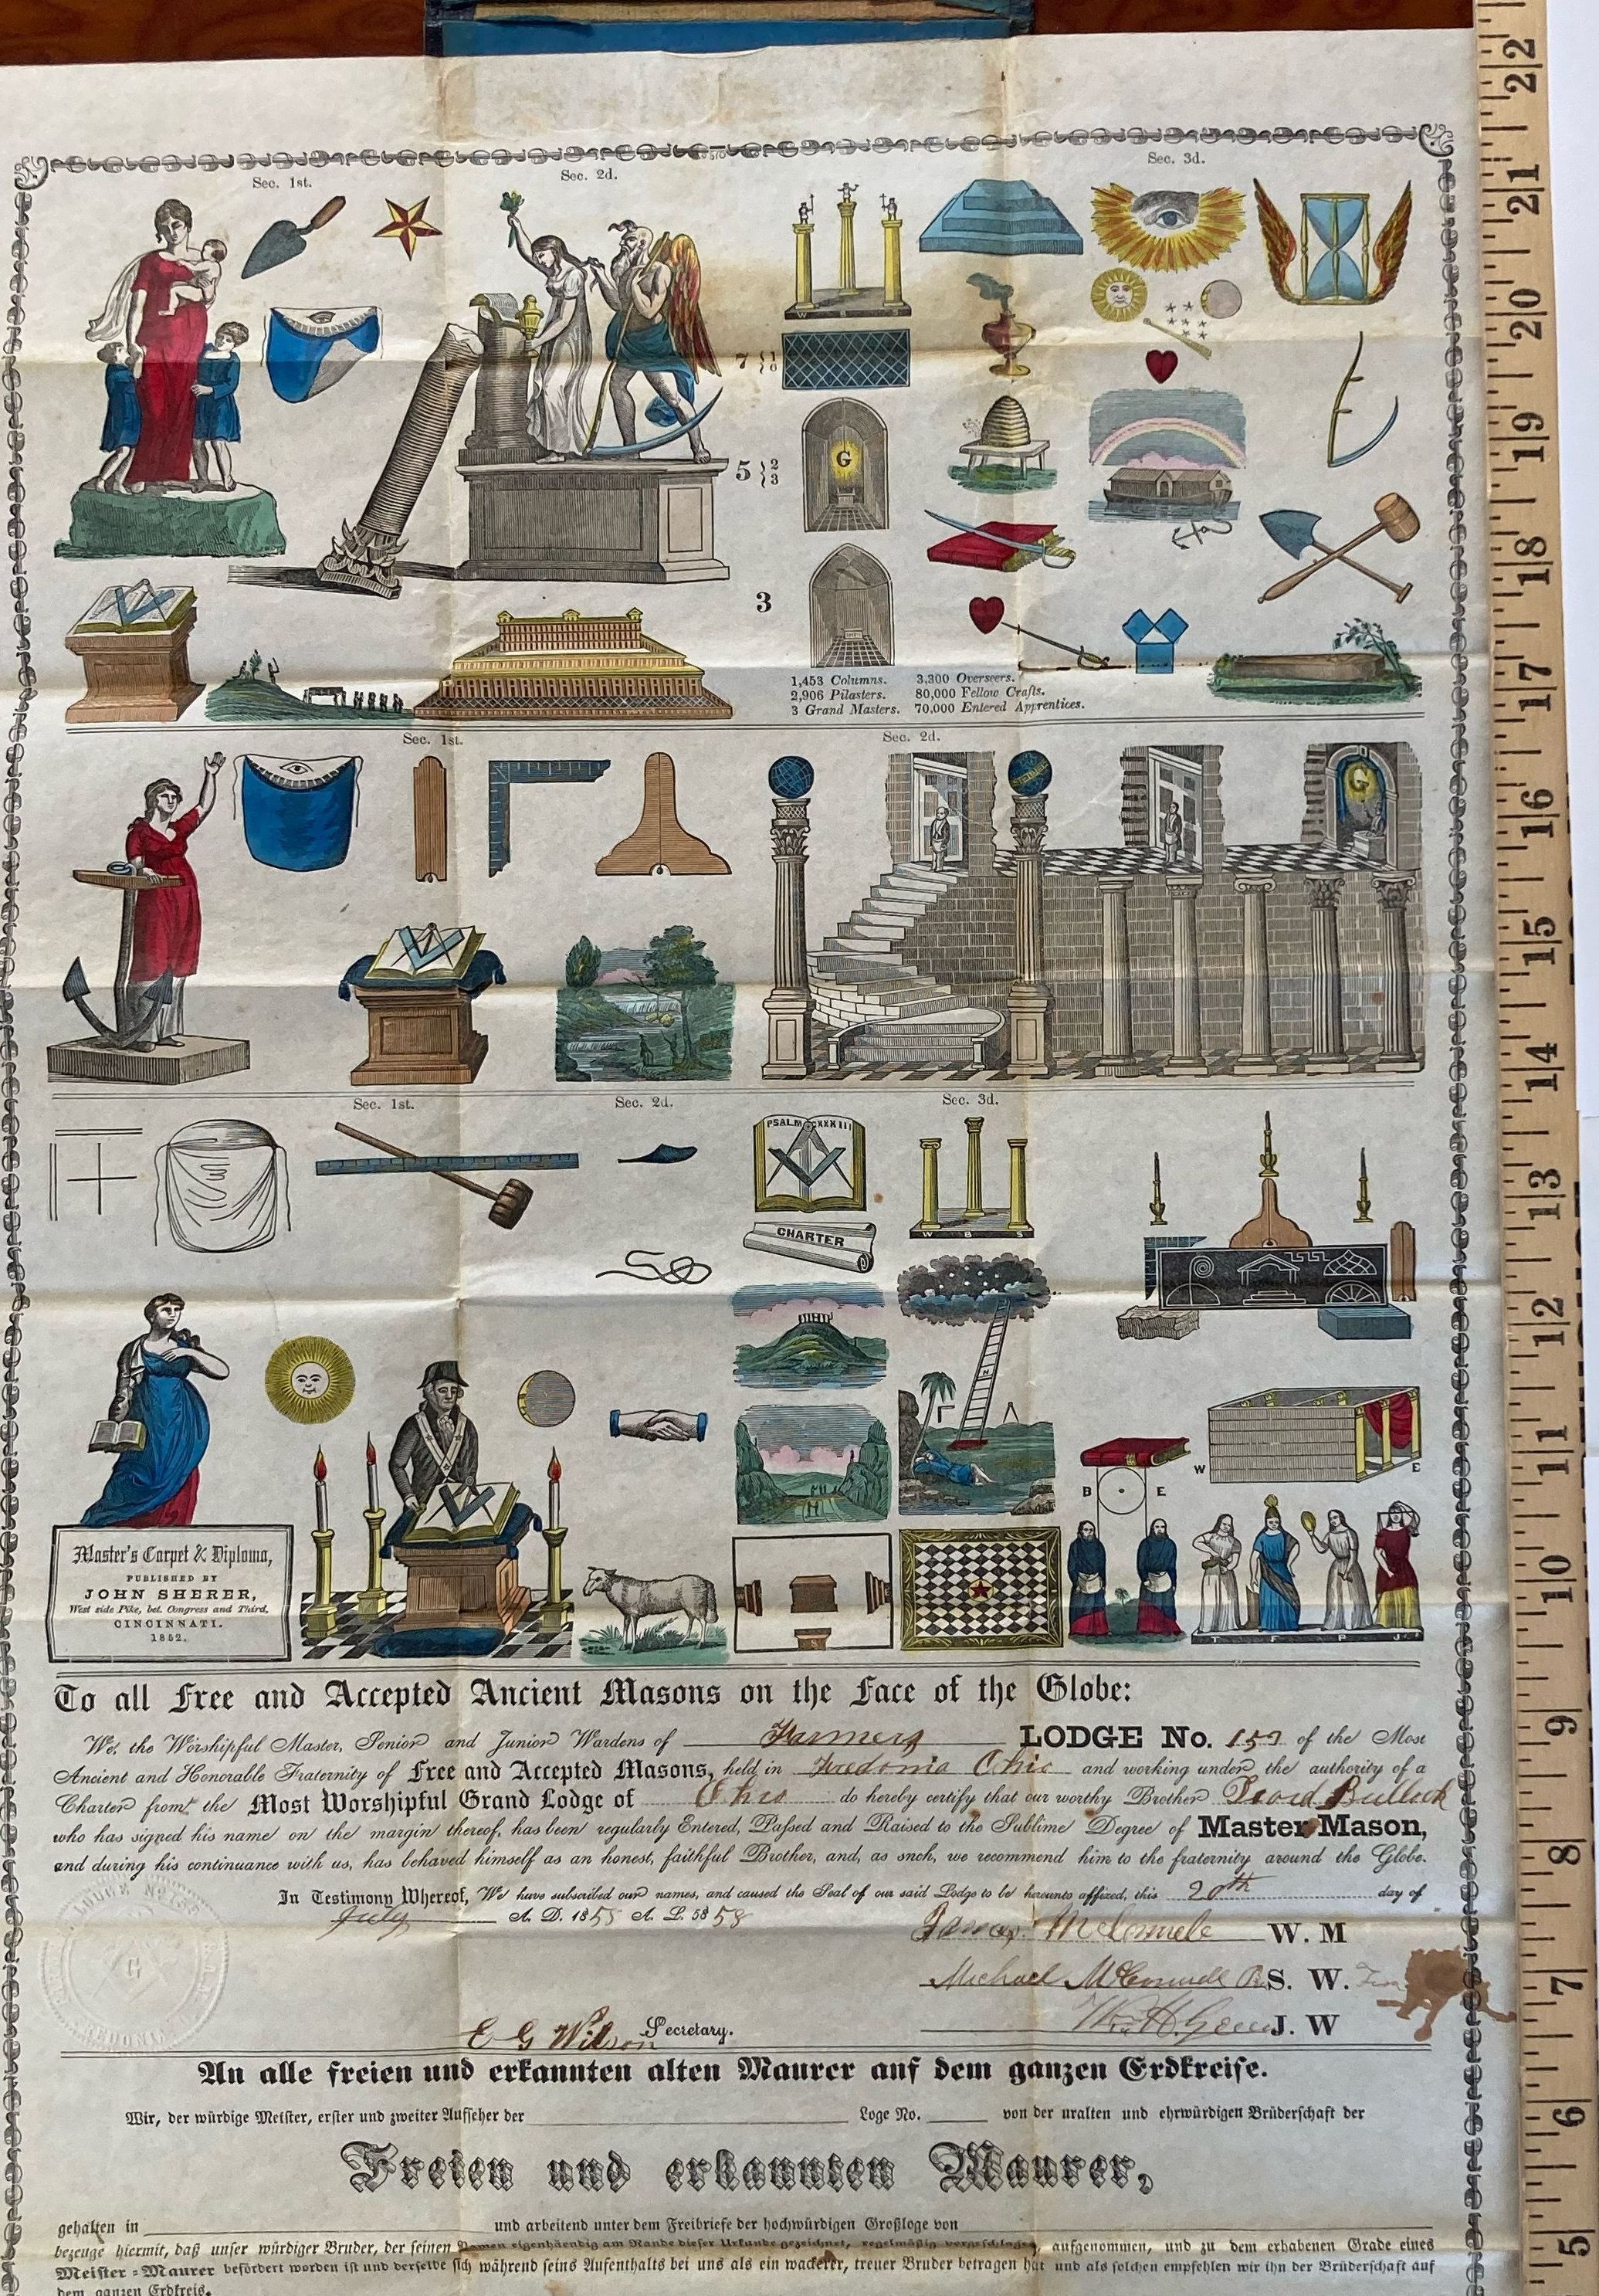 Sec. 1st.
Sec. 2d.
Sec. 3d.
W B S
7 { 1 6
G
5 { 2 3
3
1,453 Columns. 3,300 Overseers.
2,906 Pilasters. 80,000 Fellow Crafts.
3 Grand Masters. 70,000 Entered Apprentices.
Sec. 1st.
Sec. 2d.
G
Sec. 1st.
Sec. 2d.
Sec. 3d.
PSALM CXXXIII
CHARTER
W B S
W E
B E
Master's Carpet & Diploma,
PUBLISHED BY
JOHN SHERER,
West side Pike, bet. Congress and Third,
CINCINNATI.
1852.
S
T F P J
To all Free and Accepted Ancient Masons on the Face of the Globe:
We, the Worshipful Master, Senior and Junior Wardens of Farmers LODGE No. 153 of the Most
Ancient and Honorable Fraternity of Free and Accepted Masons, held in Fredonia Ohio and working under the authority of a
Charter from the Most Worshipful Grand Lodge of Ohio do hereby certify that our worthy Brother Bullock
who has signed his name on the margin thereof, has been regularly Entered, Passed and Raised to the Sublime Degree of Master Mason,
and during his continuance with us, has behaved himself as an honest, faithful Brother, and, as snch, we recommend him to the fraternity around the Globe.
In Testimony Whereof, We have subscribed our names, and caused the Seal of our said Lodge to be hereunto affixed, this 20th day of
July A. D. 1858 A. L. 5858
W. M
Michael McConnell S. W.
J. W
E G Wilson Secretary.
LODGE No 153
G
An alle freien und erkannten alten Maurer auf dem ganzen Erdkreise.
Wir, der würdige Meister, erster und zweiter Aufseher der Loge No. von der uralten und ehrwürdigen Brüderschaft der
Freien und erkannten Maurer,
gehalten in und arbeitend unter dem Freibriefe der hochwürdigen Großloge von
bezeuge hiermit, daß unser würdiger Bruder, der seinen Namen eigenhändig am Rande dieser Urkunde gezeichnet, regelmäßig vorgeschlagen, aufgenommen, und zu dem erhabenen Grade eines
Meister-Maurer befördert worden ist und derselbe sich während seins Aufenthalts bei uns als ein wackerer, treuer Bruder betragen hat und als solchen empfehlen wir ihn der Brüderschaft auf
dem ganzen Erdkreis.
22
21
20
19
18
17
16
15
14
13
12
11
10
9
8
7
6
5